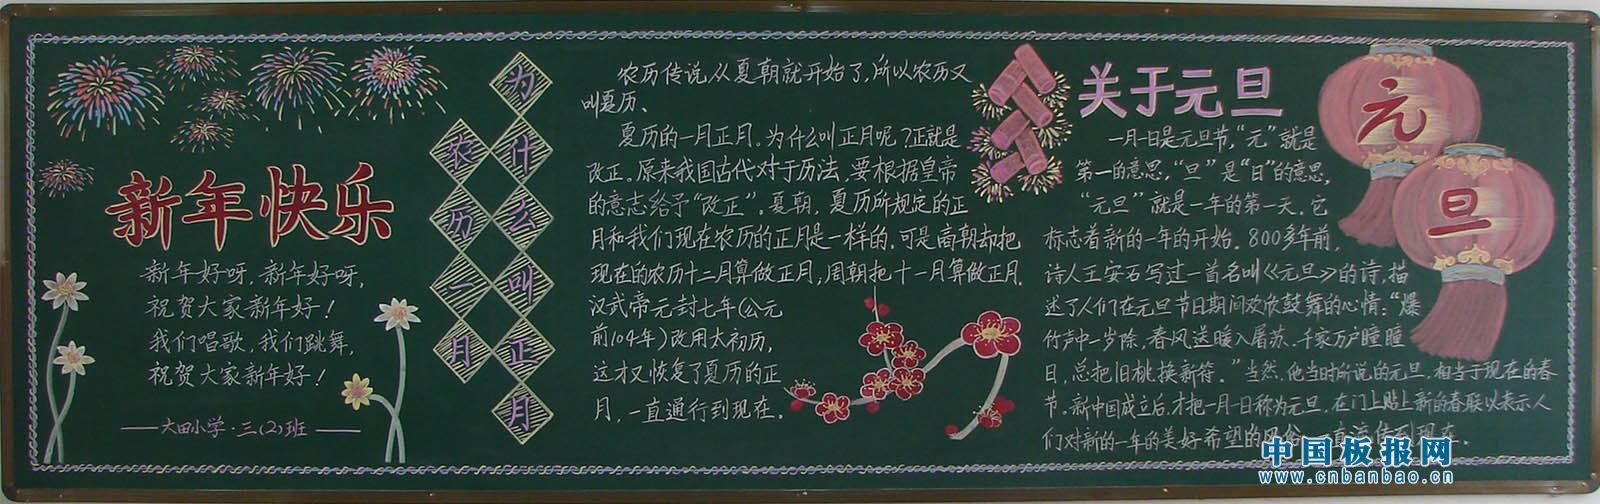 新年快乐
新年好呀,新年好呀,
祝贺大家新年好!
我们唱歌,我们跳舞,
祝贺大家新年好!
大田小学·三(2)班
农历一月
为什么叫正月
农历传说从夏朝就开始了,所以农历又
叫夏历、
夏历的一月正月。为什么叫正月呢?正就是
改正。原来我国古代对于历法,要根据皇帝
的意志给予“改正”。夏朝,夏历所规定的正
月和我们现在农历的正月是一样的。可是商朝却把
现在的农历十二月算做正月,周朝把十一月算做正月.
汉武帝元封七年(公元
前104年)改用太初历,
这才又恢复了夏历的正
月,一直通行到现在。
关于元旦
一月一日是元旦节,“元”就是
第一的意思,“旦”是“日”的意思,
“元旦”就是一年的第一天。它
标志着新的一年的开始。800多年前,
诗人王安石写过一首名叫《元旦》的诗,描
述了人们在元旦节日期间欢欣鼓舞的心情:“爆
竹声中一岁除,春风送暖入屠苏.千家万户曈曈
日,总把旧桃换新符。”当然,他当时所说的元旦,相当于现在的春
节.新中国成立后,才把一月一日称为元旦,在门上贴上新的春联以表示人
们对新的一年的美好希望的风俗,一直流传到现在。
元
旦
中国板报网
www.cnbanbao.cn